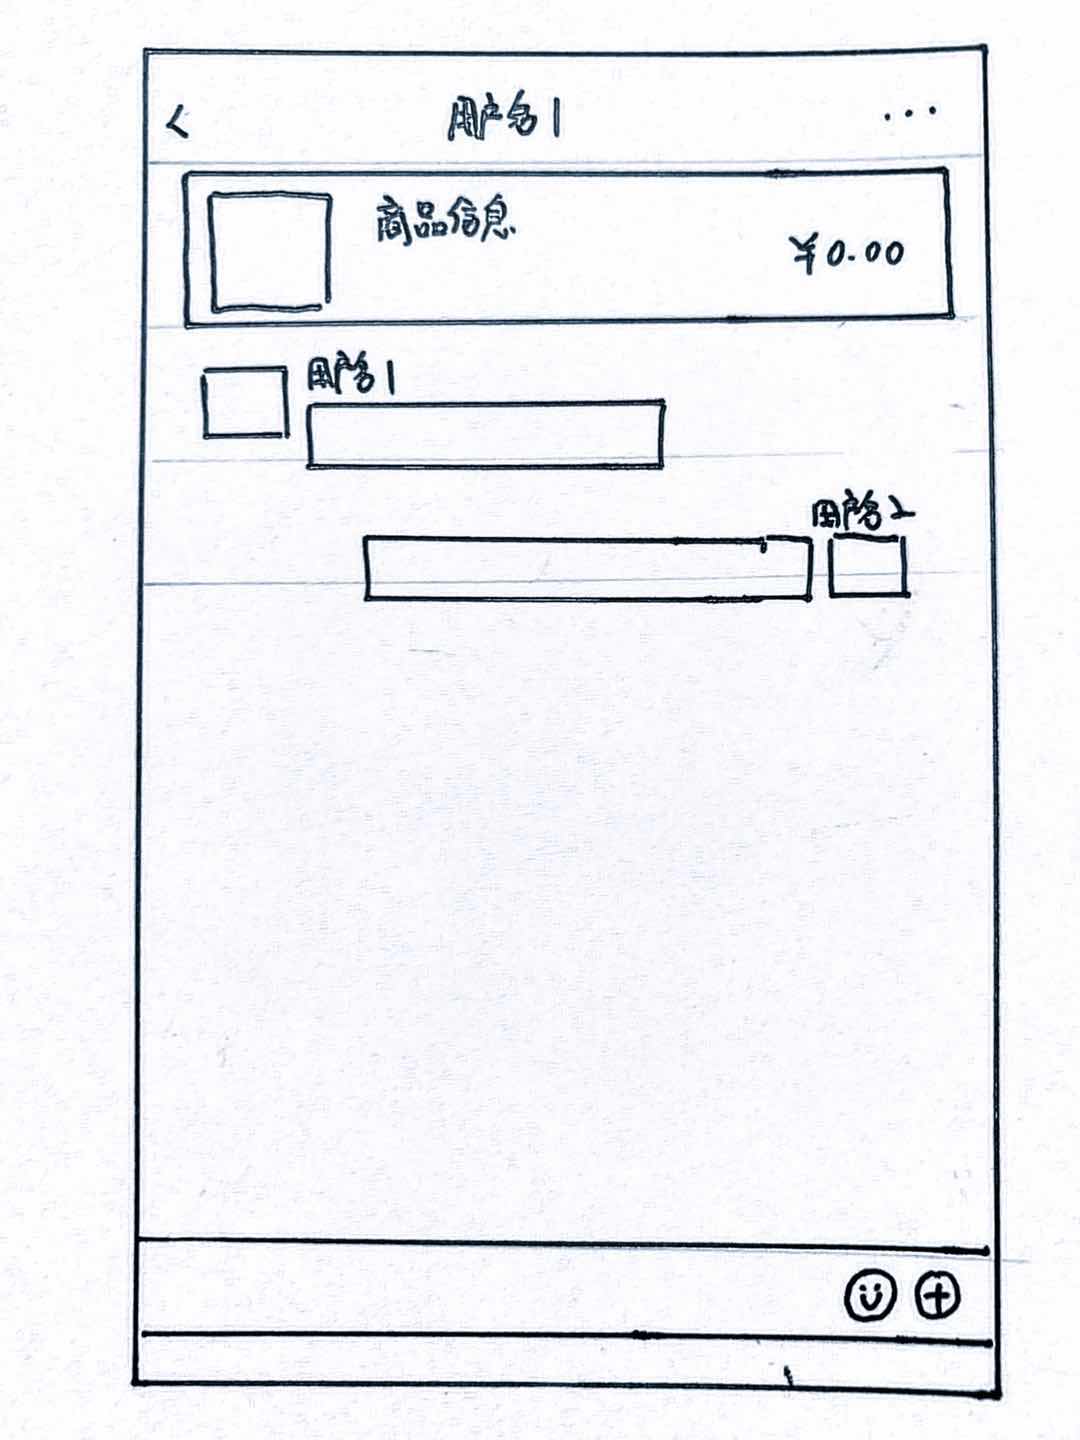 用户名1
商品信息
¥0.00
用户名1
用户名2